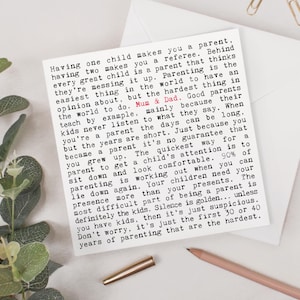 Having one child makes you a parent,
having two makes you a referee. Behind
every great child is a parent that thinks
they're messing it up. Parenting is the
easiest thing in the world to have an
opinion about, but the hardest thing in
the world to do. Mum & Dad. Good parents
teach by example, mainly because their
kids never listen to what they say. When
you're a parent the days can be long,
but the years are short. Just because you
became a parent, it's no guarantee that
you grew up. The quickest way for a
parent to get a child's attention is to
sit down and look comfortable. 90% of
parenting is working out when you can
lie down again. Your children need your
presence more than your presents. The
most difficult part of being a parent is
definitely the kids. Silence is golden... unless
you have kids, then it's just suspicious.
Don't worry, it's just the first 30 or 40
years of parenting that are the hardest.